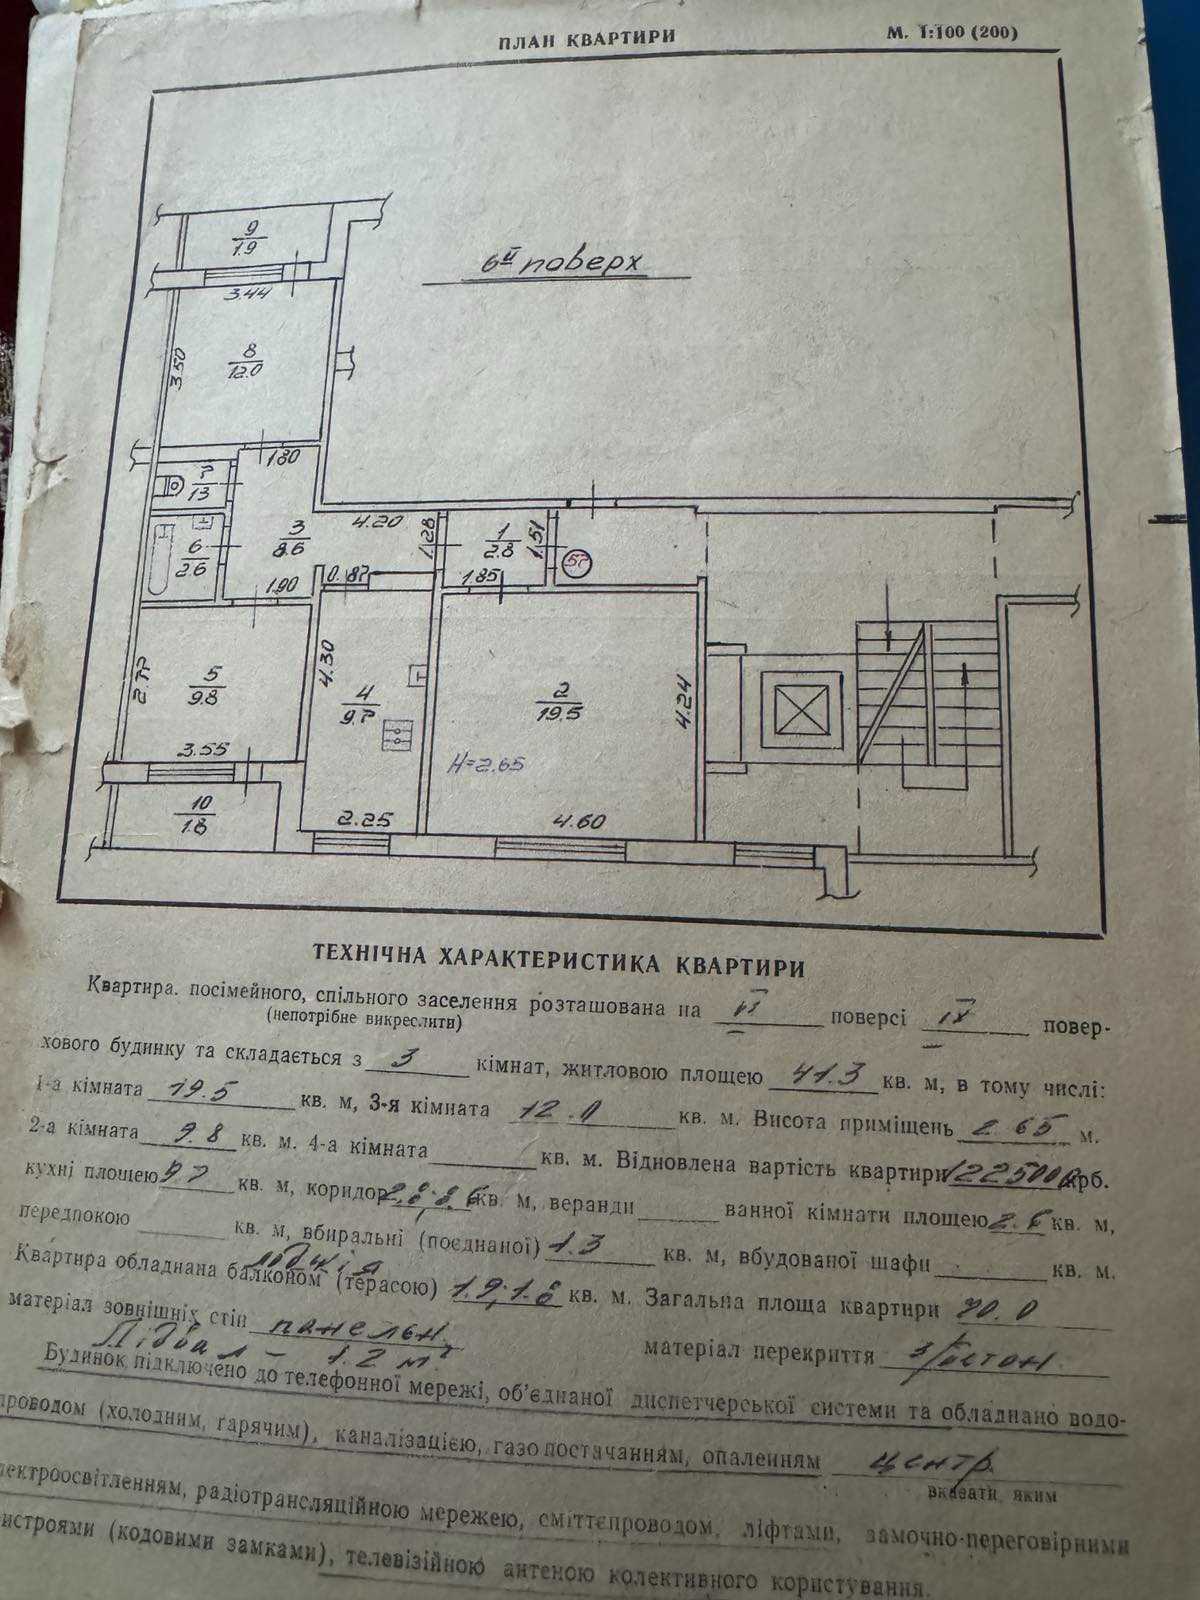 ПЛАН КВАРТИРИ М. 1:100 (200)
6й поверх
9
1.9
3.44
8
12.0
3.50
1.80
7
1.3
3
8.6
4.20
1.28
1
2.8
1.51
57
6
2.6
1.90
0.87
1.85
2.77
5
9.8
4.30
4
9.7
2
19.5
4.24
3.55
H=2.65
10
1.8
2.25
4.60
ТЕХНІЧНА ХАРАКТЕРИСТИКА КВАРТИРИ
Квартира. посімейного, спільного заселення розташована на VI поверсі IX повер-
(непотрібне викреслити)
хового будинку та складається з 3 кімнат, житловою площею 41.3 кв. м, в тому числі:
1-а кімната 19.5 кв. м, 3-я кімната 12.0 кв. м. Висота приміщень 2.65 м.
2-а кімната 9.8 кв. м. 4-а кімната кв. м. Відновлена вартість квартири крб.
кухні площею 9.7 кв. м, коридор 2.8; 8.6 кв. м, веранди ванної кімнати площею 2.6 кв. м,
передпокою кв. м, вбиральні (поєднаної) 1.3 кв. м, вбудованої шафи кв. м.
лоджія
Квартира обладнана балконом (терасою) 1.9; 1.8 кв. м. Загальна площа квартири 70.0
матеріал зовнішніх стін панельн. матеріал перекриття з/бетон.
Підвал - 1.2 м²
Будинок підключено до телефонної мережі, об'єднаної диспетчерської системи та обладнано водо-
проводом (холодним, гарячим), каналізацією, газопостачанням, опаленням центр.
вказати яким
лектроосвітленням, радіотрансляційною мережею, сміттєпроводом, ліфтами, замочно-переговірними
истроями (кодовими замками), телевізійною антеною колективного користування.